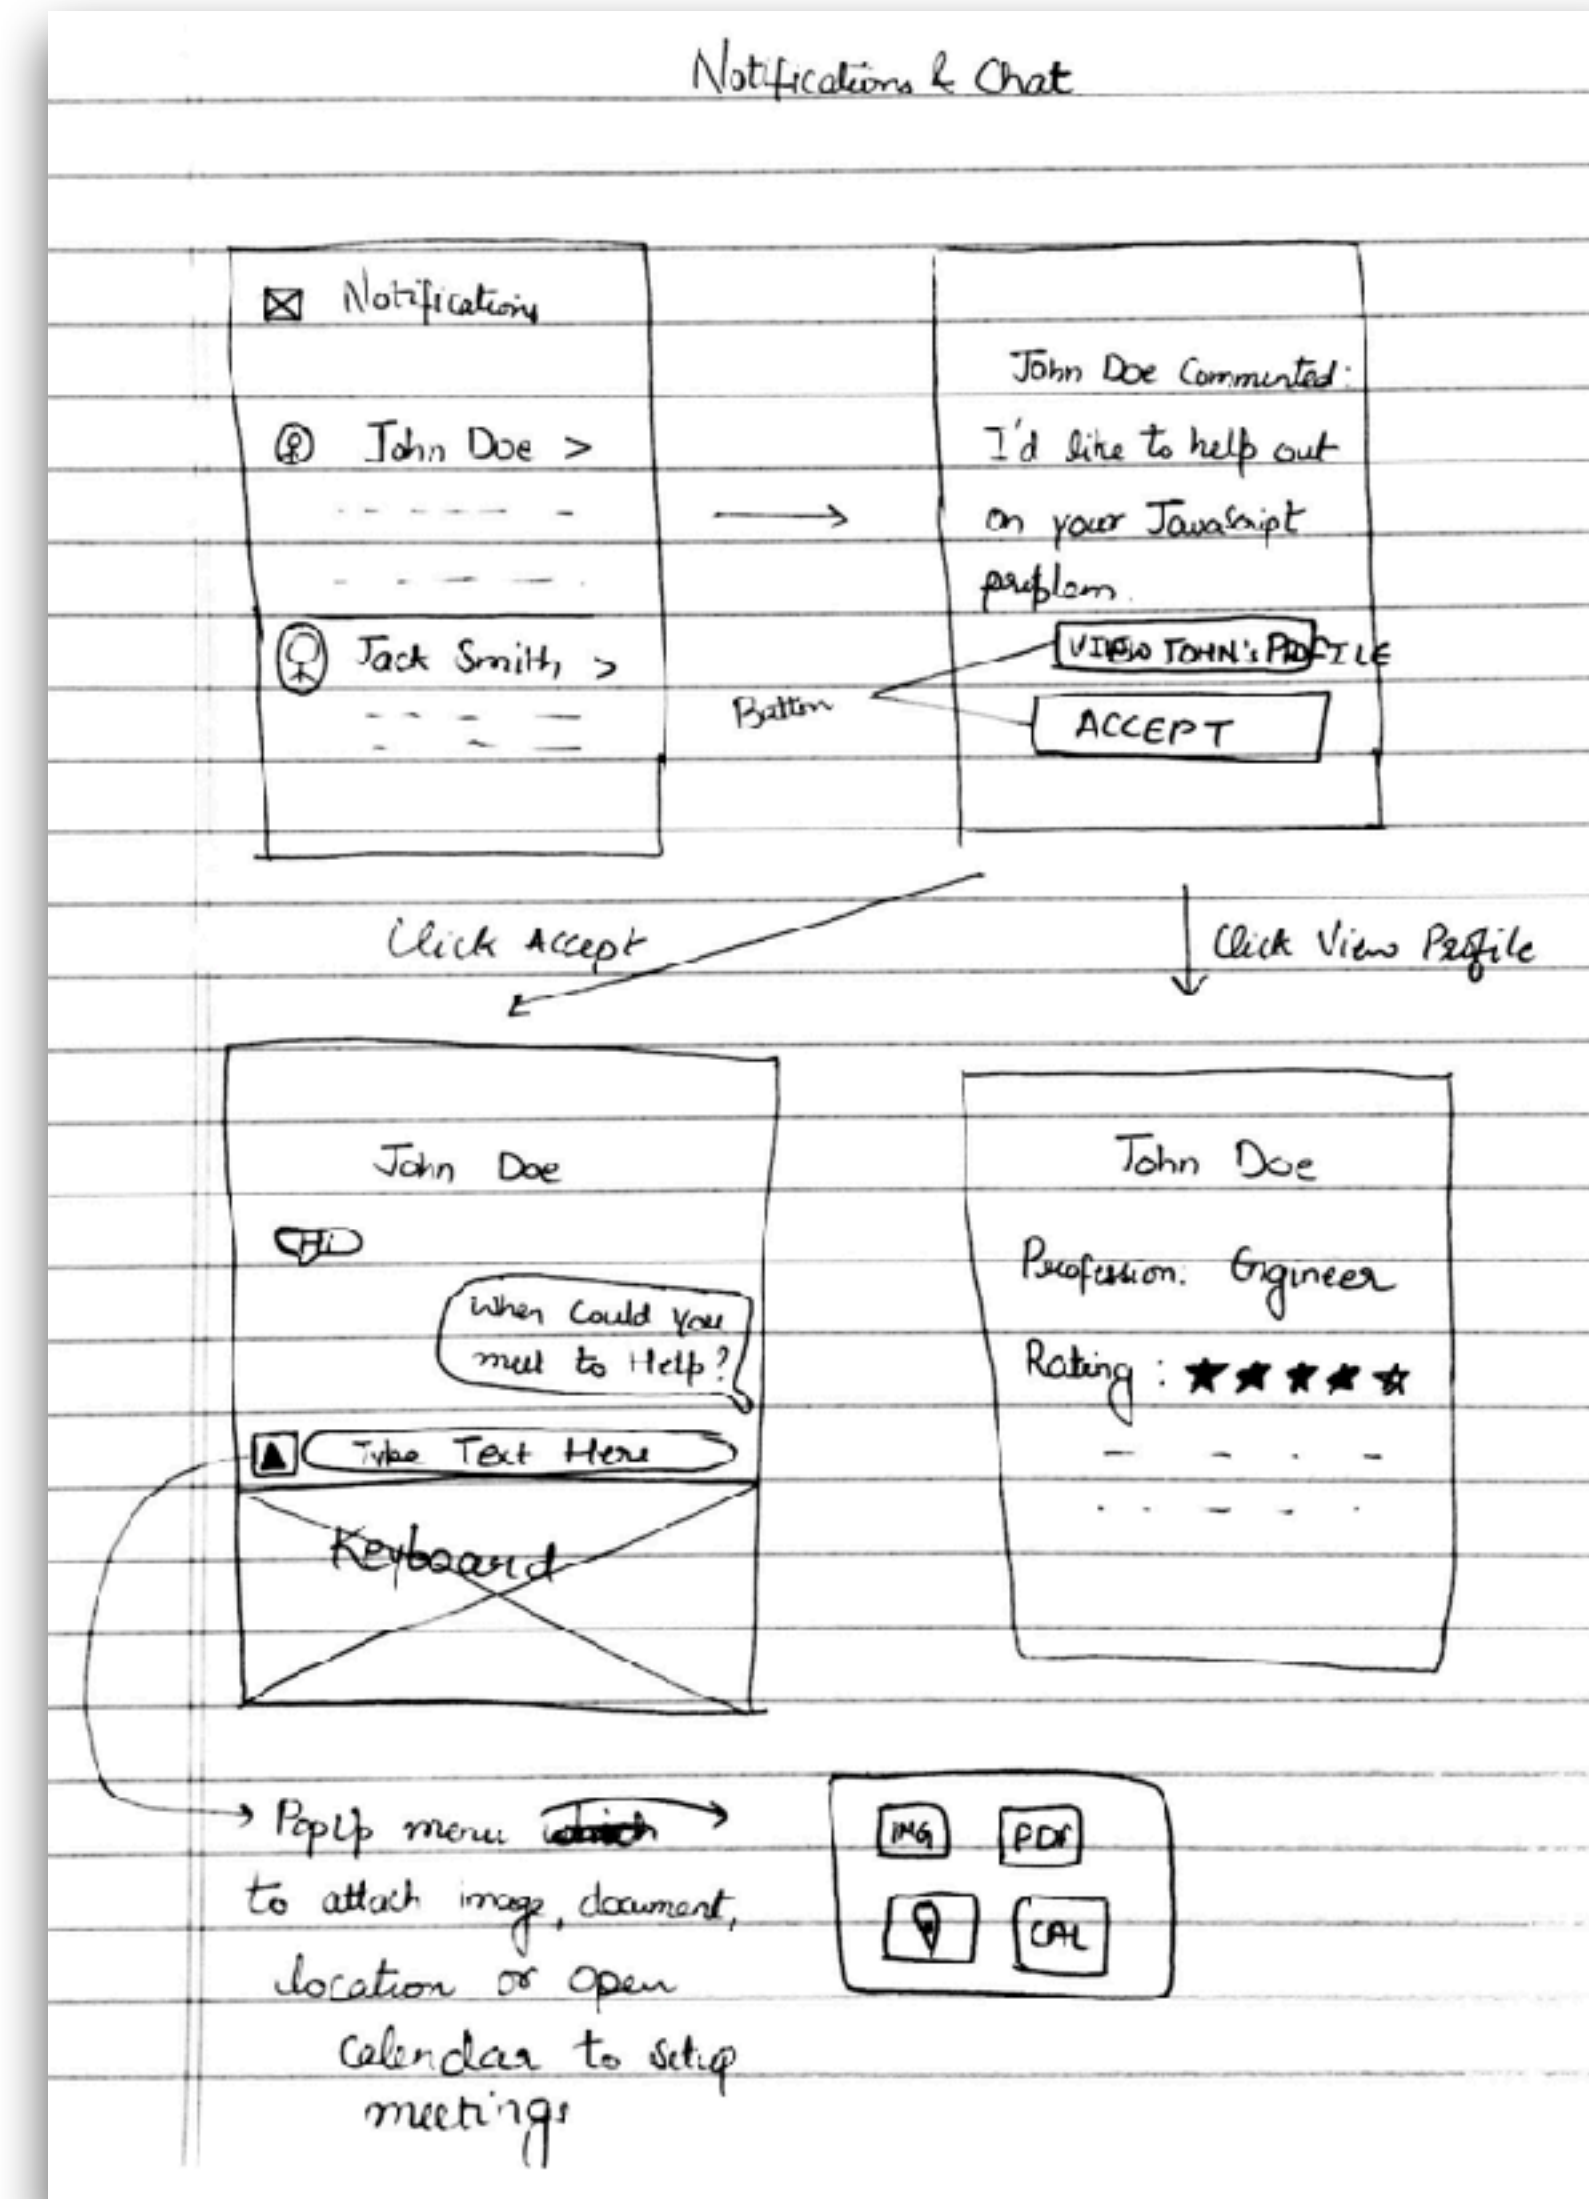 Notifications & Chat
Notifications
John Doe >
Jack Smith >
John Doe Commented:
I'd like to help out
on your JavaScript
problem.
VIEW JOHN'S PROFILE
ACCEPT
Button
Click Accept
Click View Profile
John Doe
Hi
When Could You
meet to Help?
Type Text Here
Keyboard
John Doe
Profession: Engineer
Rating :
PopUp menu
to attach image, document,
location or open
calendar to setup
meetings
IMG
PDF
CAL